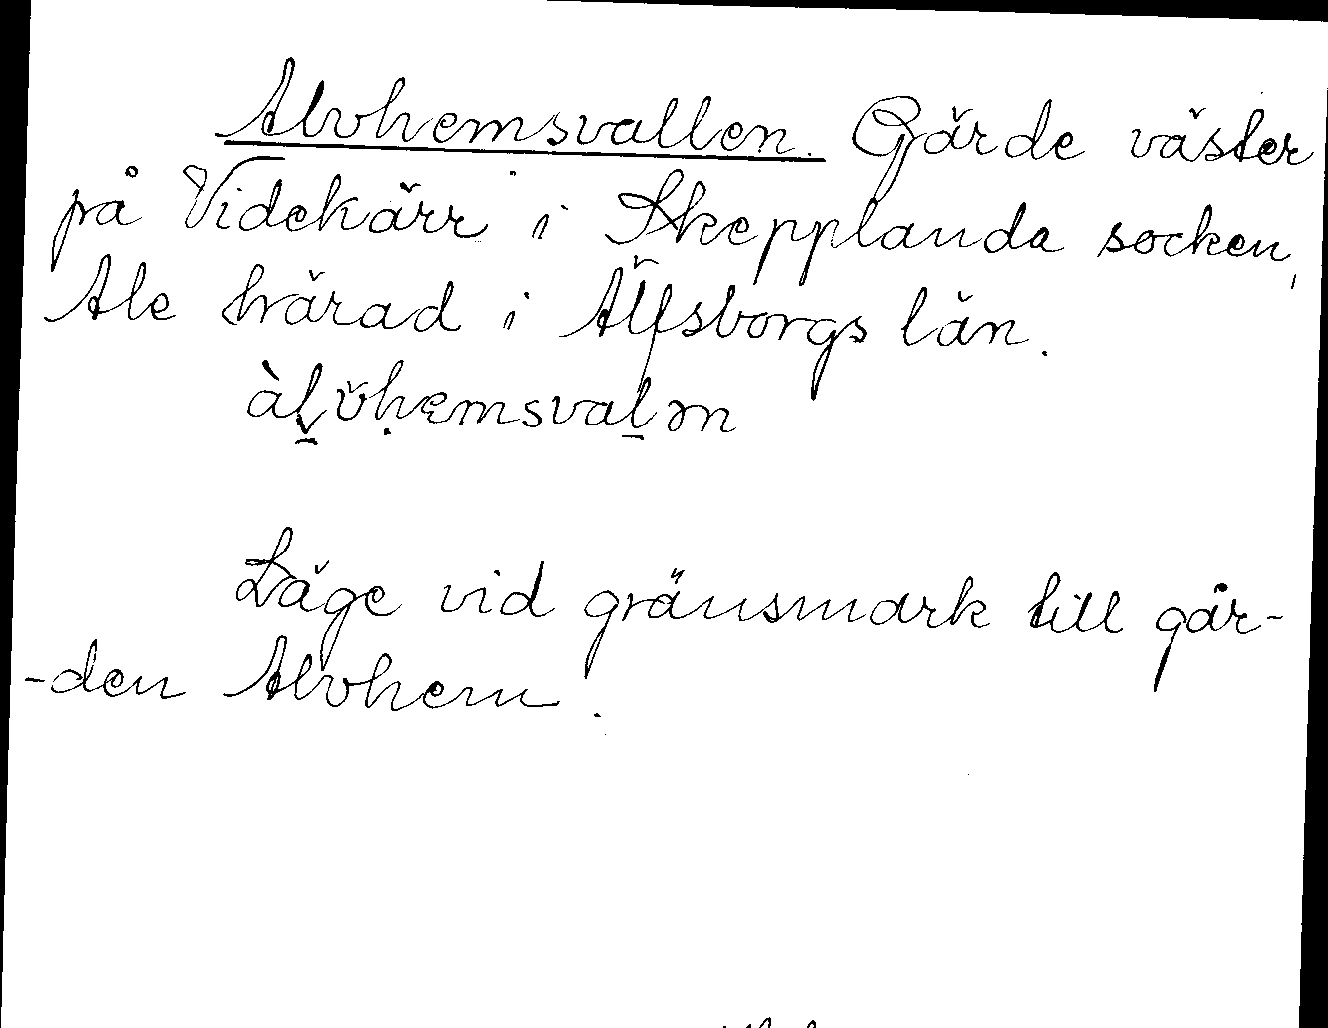 Alvhemsvallen. Gärde väster
på Videkärr i Skepplanda socken,
Ale härad i Älfsborgs län.
àl̬v̆hemsvaḻən
Läge vid gränsmark till går-
-den Alvhem.